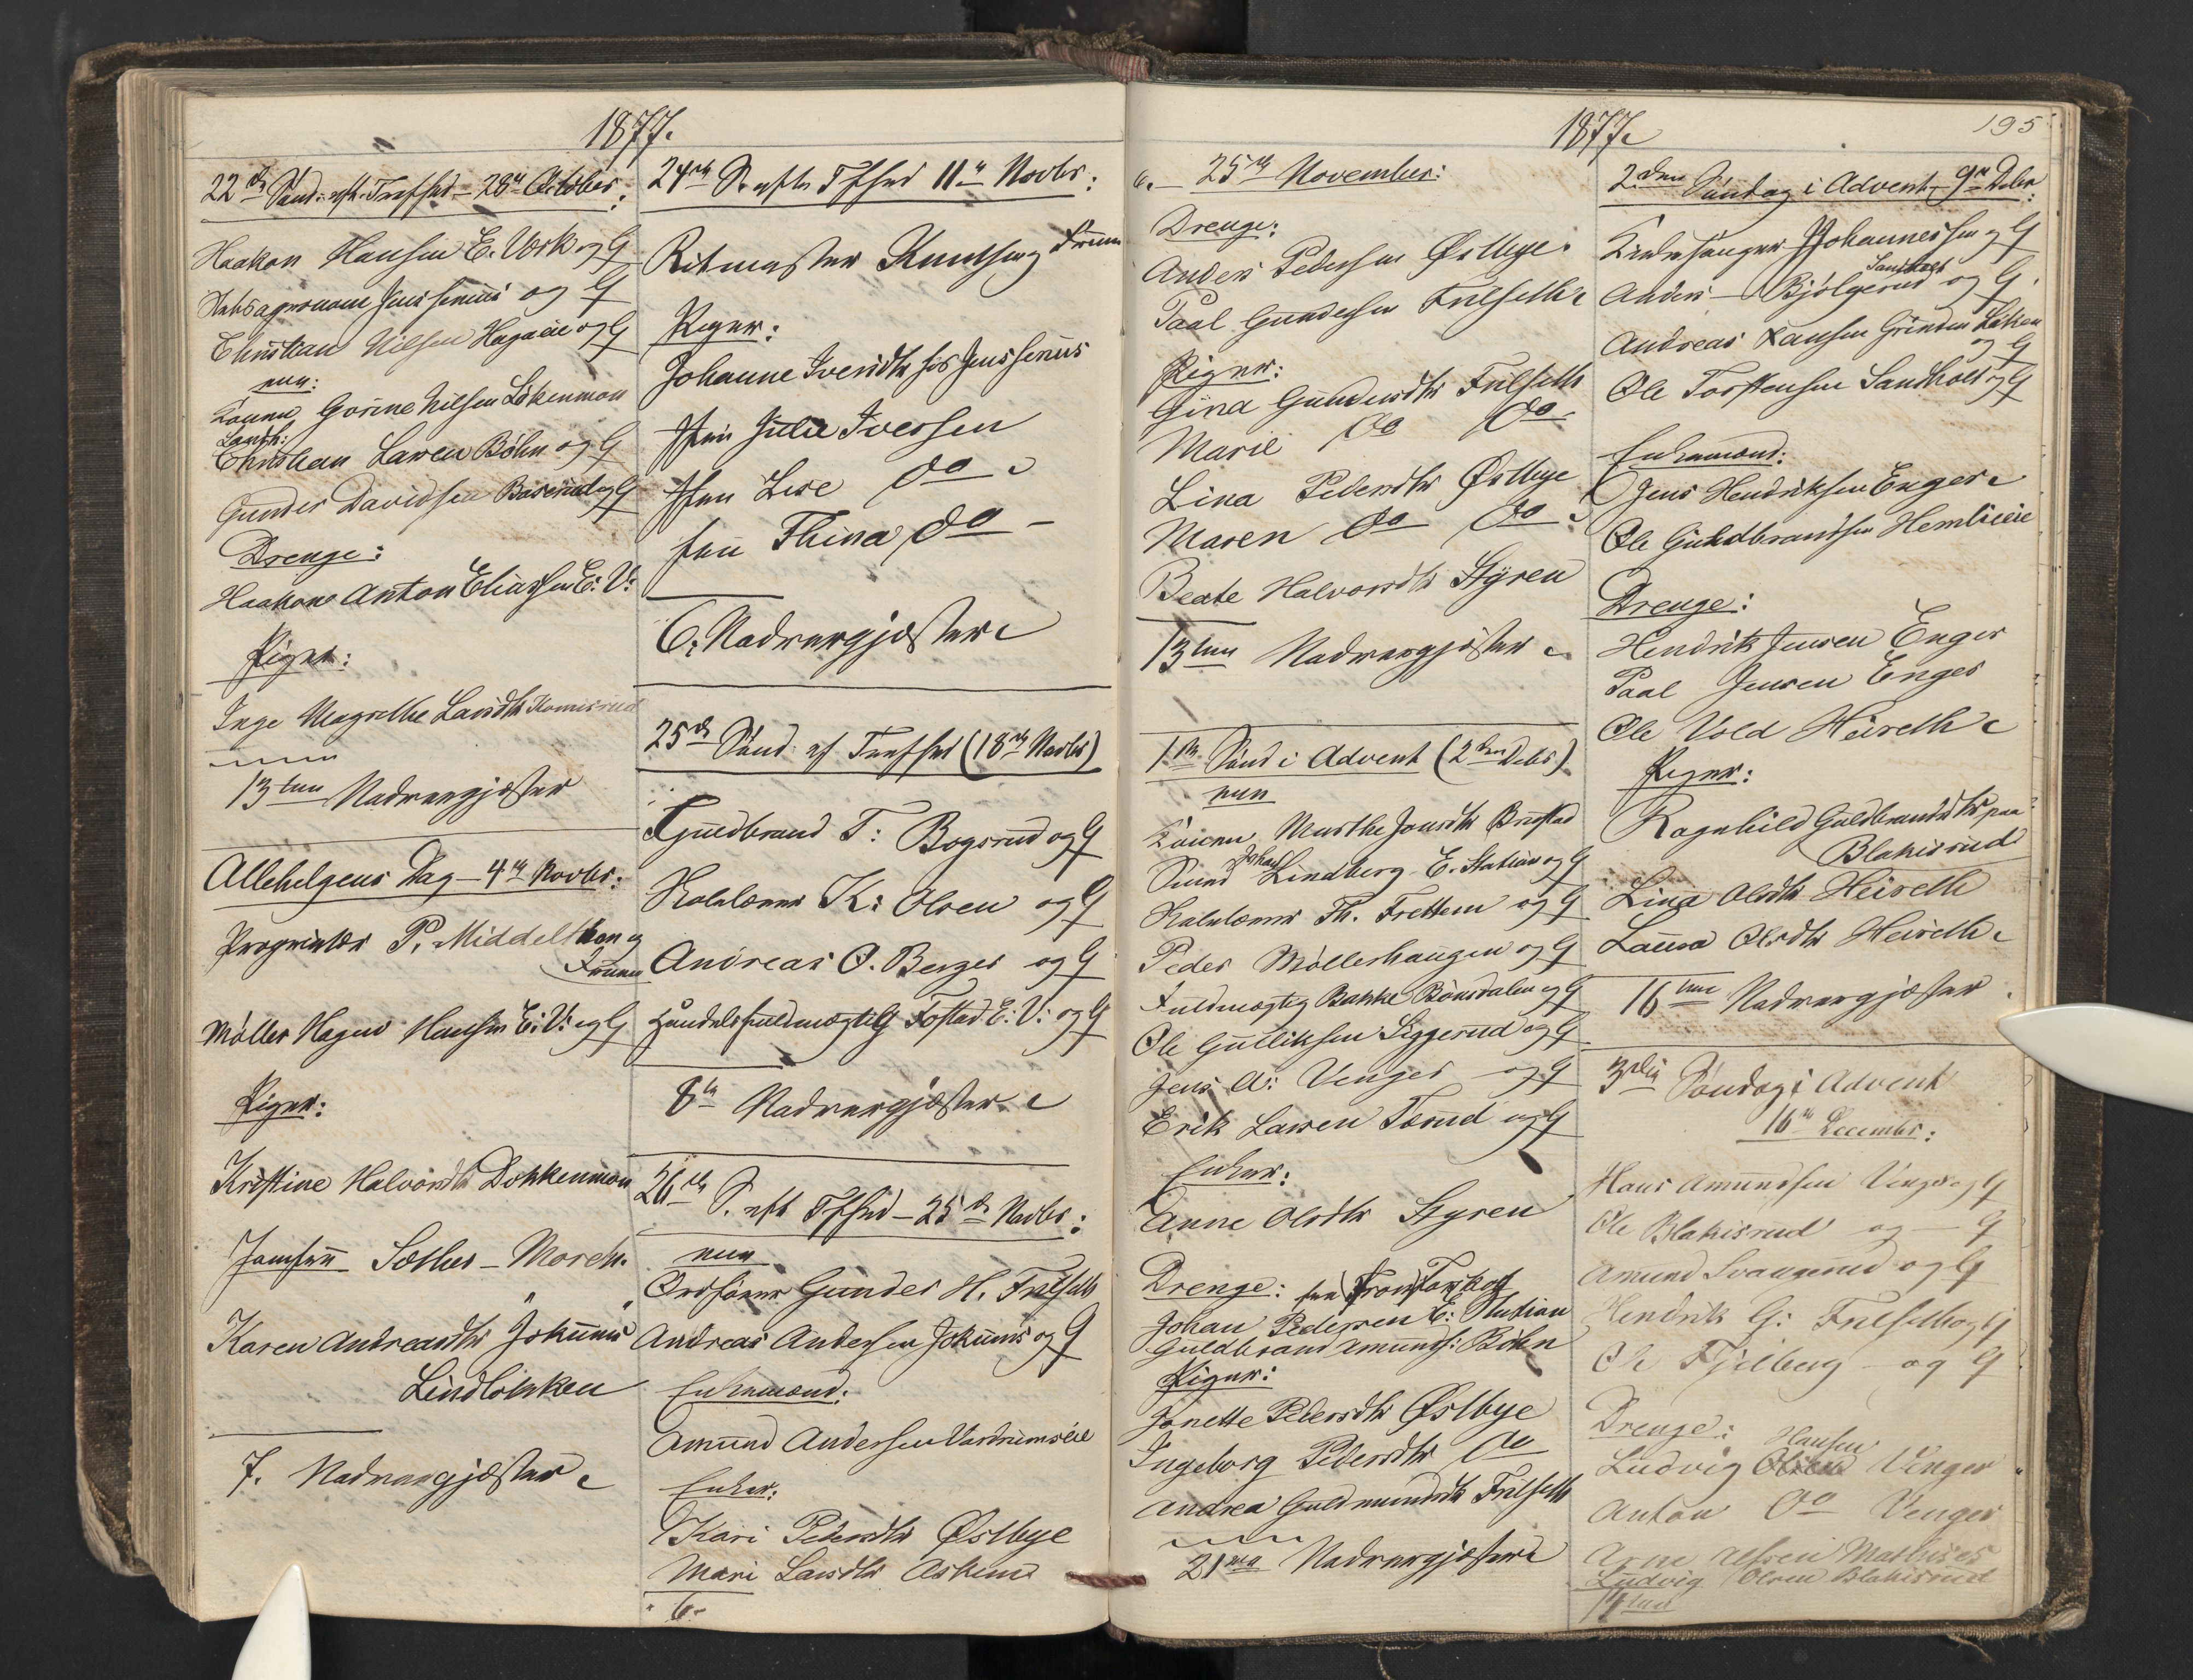 1877.
22de Sønd: eft. Trefhed - 28de October:
Haakon Hansen E. Værk og G
Christian Nilsen Hagaeie og G
Konen Gorine Nilsen Løkenmoen
Christian Larsen Bøhn og G
Gunder Davidsen Baserud og G
Drenge:
Haakon Anton Eliassen E: V:
Piger:
Inge Magrethe Larsdtr Komisrud
13ten Nadvergjæster
Allehelgens Dag - 4de Novbr:
Proprietær P. Middelthon og
Fruen
Møller Hagen Hansen E: V: og G
Piger:
Kristine Halvorsdtr Dokkenmoen
Jomfru Sæther - Moreh.
Karen Andreasdtr Jokums
Lindløkken
7. Nadvergjæster
24de S. efter Tfhed 11te Novbr:
Ritmester Knutsen og Fruen
Piger:
Johanne Iversdtr hos Jens
Frkn Julie Iversen
Frkn Lise do
frkn Thina do -
6. Nadvergjæster
25de Sønd: ef Trefhed (18de Novbr)
Guldbrand T: Bogsrud og G
Kirkesanger K: Olsen og G
Andreas O. Berger og G
Handelsfuldmægtig Tostad E: V: og G
8te Nadvergjæster
26de S. eft Tfhed - 25de Novbr:
Ordfører Gunder H. Frilseth
Andreas Andersen Jokums og G
Enkemænd:
Amund Andersen
Enker:
Kari Pedersdtr Østbye
Mari Larsdtr Askerud
6.
1877
195
6. - 25de November:
Drenge:
Anders Pedersen Østbye
Paal Gundersen Frilseth
Piger:
Gina Gundersdtr Frilseth
Marie do do
Lina Pedersdtr Østbye
Maren do do
Beate Halvorsdtr Styren
13ten Nadvergjæster
1ste Sønd i Advent (2den Debr)
Konen Marthe Jonsdtr Brustad
Johan Lindberg E. Station og G
Th. Frettem og G
Peder Møllerhaugen og G
Fuldmægtig Bakke Bønsdalen og G
Ole Gulliksen Siggerud og G
Jens A: Venger og G
Erik Larsen Tærud og G
Enker:
Anne Olsdtr Styren
Drenge:
Johan Pedersen E: Station
Guldbrand Amunds: Bøhn
Piger:
Jonette Pedersdtr Østbye
Ingeborg Pedersdtr do
Andrea Guldmundsdtr Frilseth
21 Nadvergjæster
2den Søndag i Advent - 9de Debr:
Kirkesanger Johannessen og G
Anders - Bjølgerud Sandholt og G.
Andreas Hansen Grinden Løken
og G
Ole Torstensen Sandholt og G
Enkemænd:
Jens Hendriksen Enger
Ole Guldbrandsen Hemlieie
Drenge:
Hendrik Jensen Enger
Paal Jensen Enger
Ole Vold Heiseth
Piger:
Ragnhild Guldbrandsdtr paa
Blakisrud
Lina Olsdtr Heiseth
Laura Olsdtr Heiseth
16ten Nadvergjæster
3die Søndag i Advent
16de December:
Hans Amundsen Venger og G
Ole Blakisrud og - G
Amund Svangerud og G
Hendrik G: Frilseth og G
Ole Fjelberg - og G
Drenge:
Hansen
Ludvig Olsen Venger
Anton do Venger
Arne
Ludvig Olsen Blakisrud